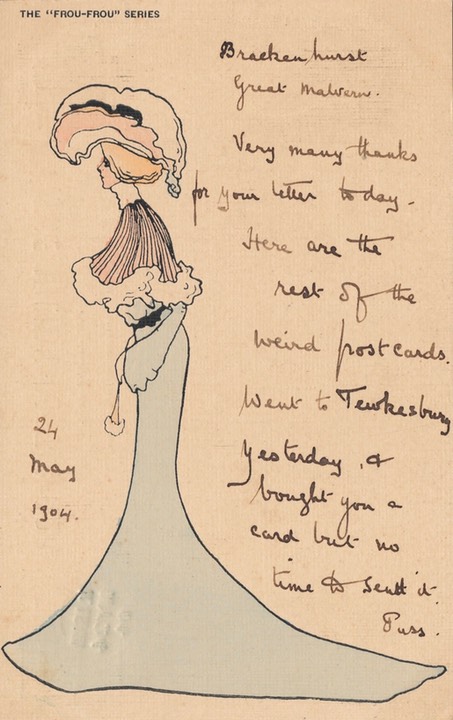 THE "FROU-FROU" SERIES
Brackenhurst
Great Malvern.
Very many thanks
for your letter to day.
Here are the
rest of the
weird postcards.
Went to Tewkesbury
Yesterday, &
bought you a
card but no
time to send it.
Puss.
24
May
1904.